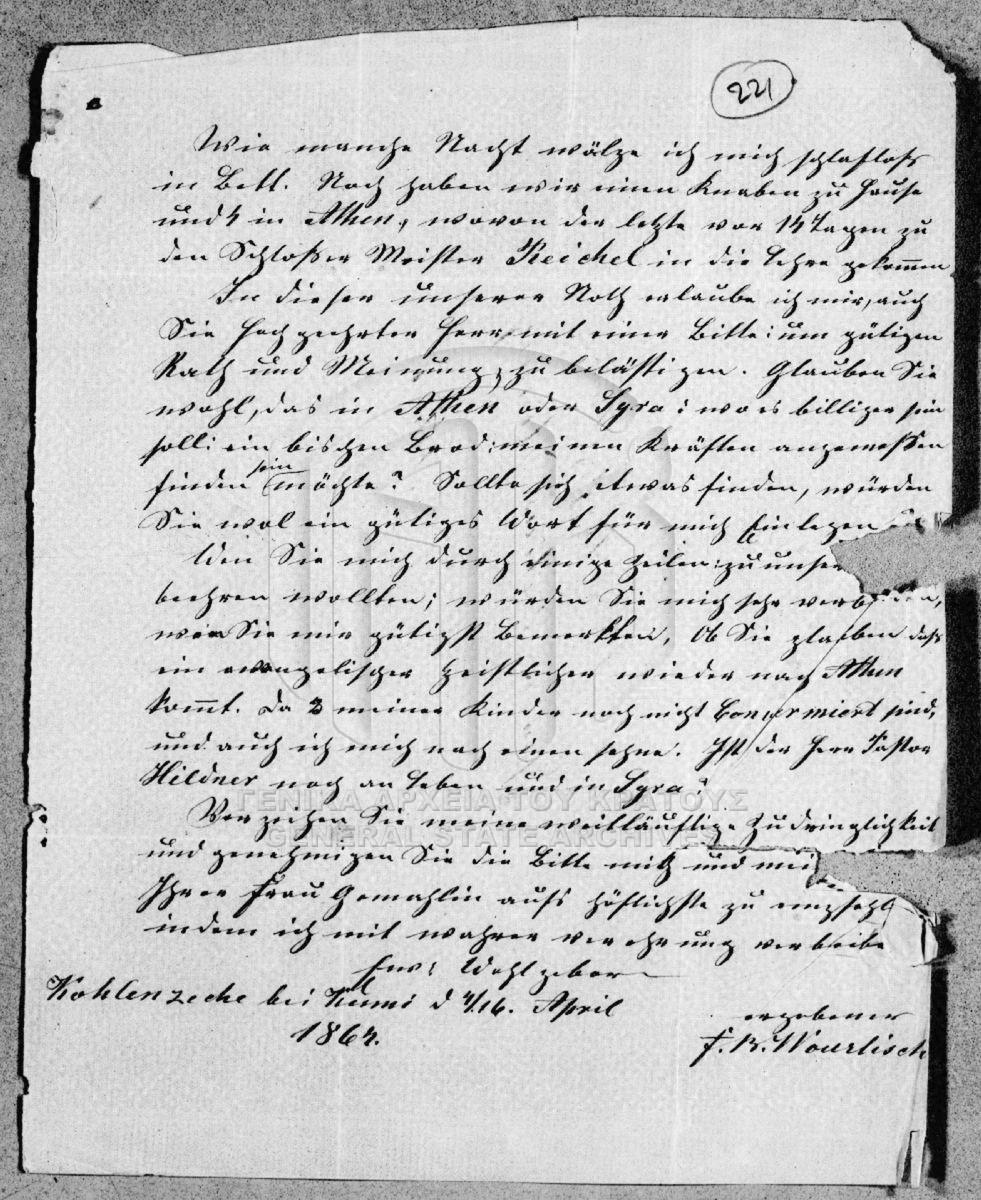 221
Wie manche Nacht wälze ich mich schlaflos
in Bett. Noch haben wir einen Knaben zu Hause
und 4 in Athen, wovon der letzte vor 14 Tagen zu
den Schloßer Meister Reichel in die Lehre gekommen
In dieser unserer Noth erlaube ich mir, auch
Sie hochgeehrter Herr mit einer Bitte: um gütigen
Rath und Meinung, zu belästigen. Glauben Sie
wohl, das in Athen oder Syra: wo es billiger sein
soll: ein bischen Brod: meinen Kräften angemessen
finden sein möchte? Sollte sich etwas finden, würden
Sie wol ein gütiges Wort für mich Einlegen
Sie mich durch einige Zeilen: zu unser
beehren wollten; würden Sie mich sehr verbinden,
wen Sie mir gütigst bemerkten, Ob Sie glauben daß
ein evangelischer Geistlicher wieder nach Athen
kommt. Da 2 meiner Kinder noch nicht Confirmiert sind,
und auch ich mich nach einen sehne. Ist der Herr Pastor
Hildner noch an Leben und in Syra?
Verzeihen Sie meine weitläuftige Zudringlichkeit
und genehmigen Sie die Bitte mich und mei
Ihrer Frau Gemahlin aufs höflichste zu empfehl
indem ich mit wahrer verehrung verbleibe
Euer Wohlgebor
Kohlenzeche bei Kumi d 4/16. April
1864.
ergebener
F. B. Wourlisch
ΓΕΝΙΚΑ ΑΡΧΕΙΑ ΤΟΥ ΚΡΑΤΟΥΣ
GENERAL STATE ARCHIVES